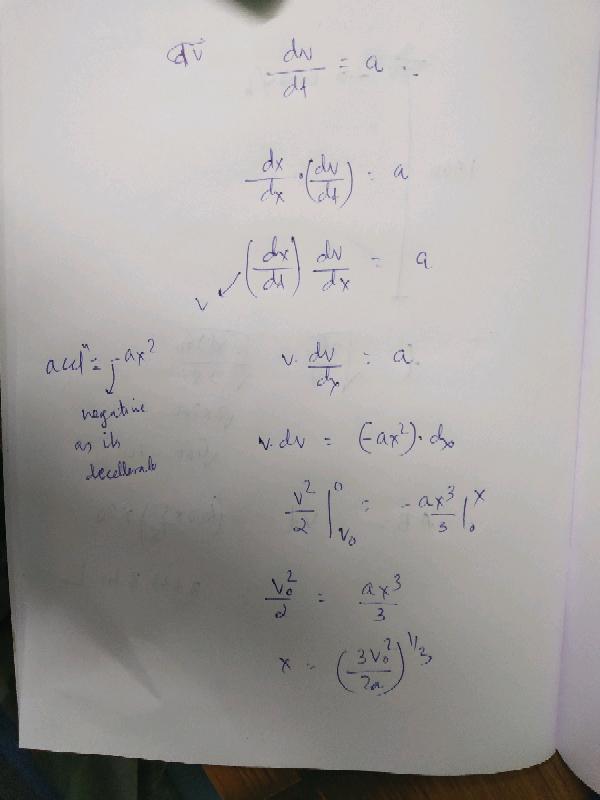 dv/dt = a
dx/dx · (dv/dt) = a
v ↙ (dx/dt) dv/dx = a
accl^n = -ax^2
negative
as its
v. dv/dx = a.
v.dv = (-ax^2). dx
v^2/2 |_{v_0}^{0} = -ax^3/3 |_{0}^{x}
v_0^2/2 = ax^3/3
x = (3v_0^2/2a)^{1/3}